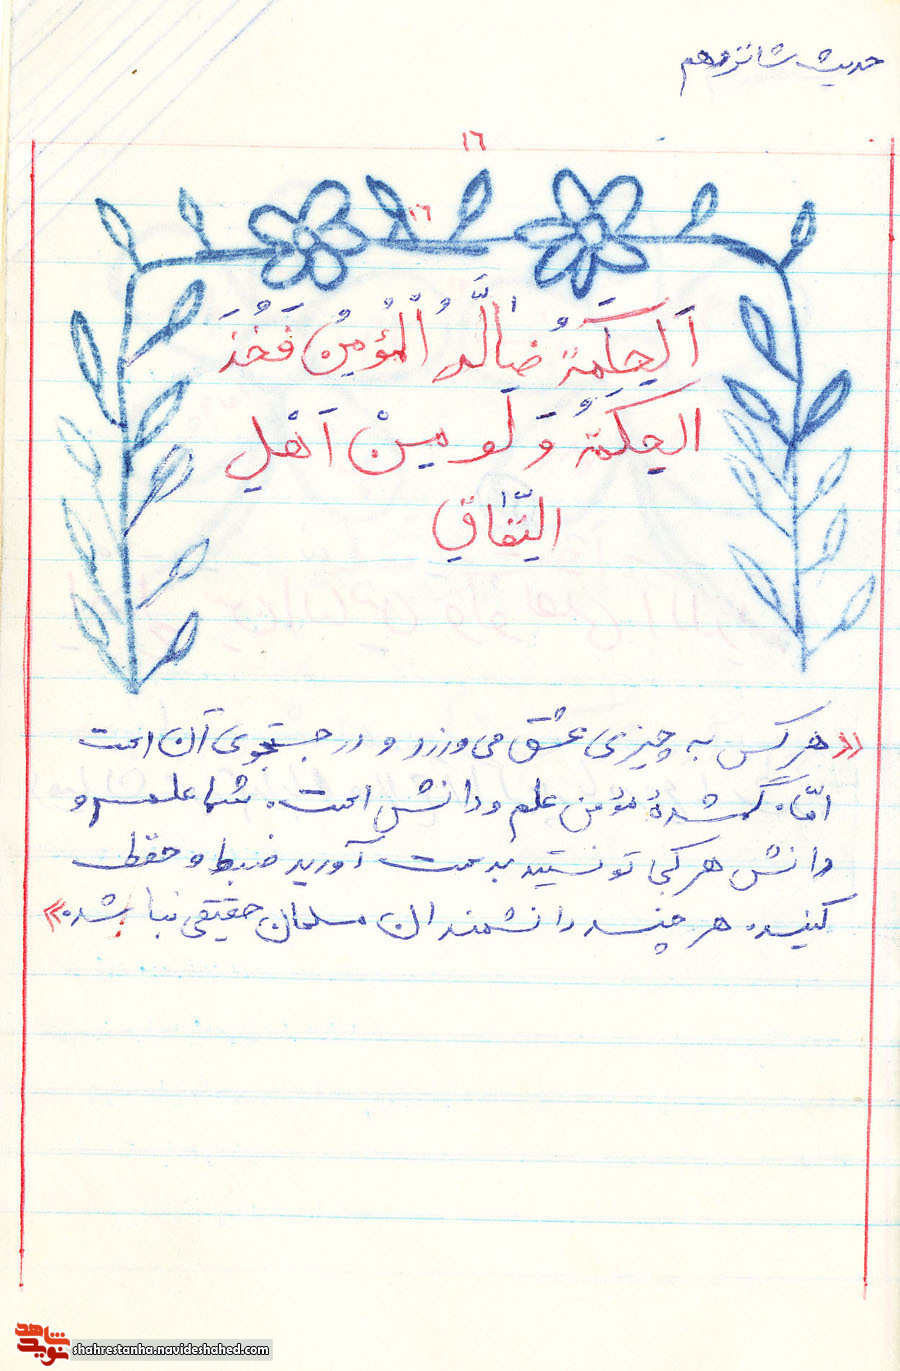 حدیث شانزدهم
١٦
١٦
اَلحِکمَةُ ضالَّةُ الْمُؤْمِنُ فَخُذَ
الحِکمَةُ وَ لَو مِنْ اَهْلِ
النِّفاقِ
«هر کس به چیزی عشق می ورزد و در جستجوی آن است
امّا. گمشدهٔ مؤمن علم و دانش است. شما علم و
دانش هر کجا تونستید بدست آورید ضبط و حفظ
کنید. هر چند دانشمندان مسلمان حقیقی نباشد.»
شاهد
نوید
shahrestanha.navideshahed.com